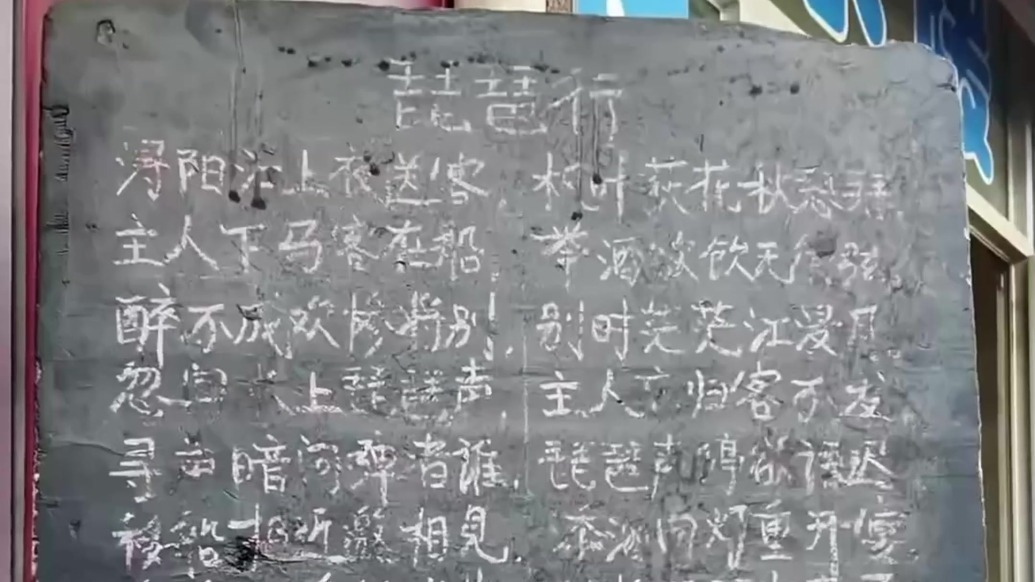 琵琶行
浔阳江上夜送客,枫叶荻花秋瑟瑟
主人下马客在船,举酒欲饮无管弦
醉不成欢惨将别,别时茫茫江浸月
忽闻水上琵琶声,主人忘归客不发
寻声暗问弹者谁,琵琶声停欲语迟
移船相近邀相见,添酒回灯重开宴